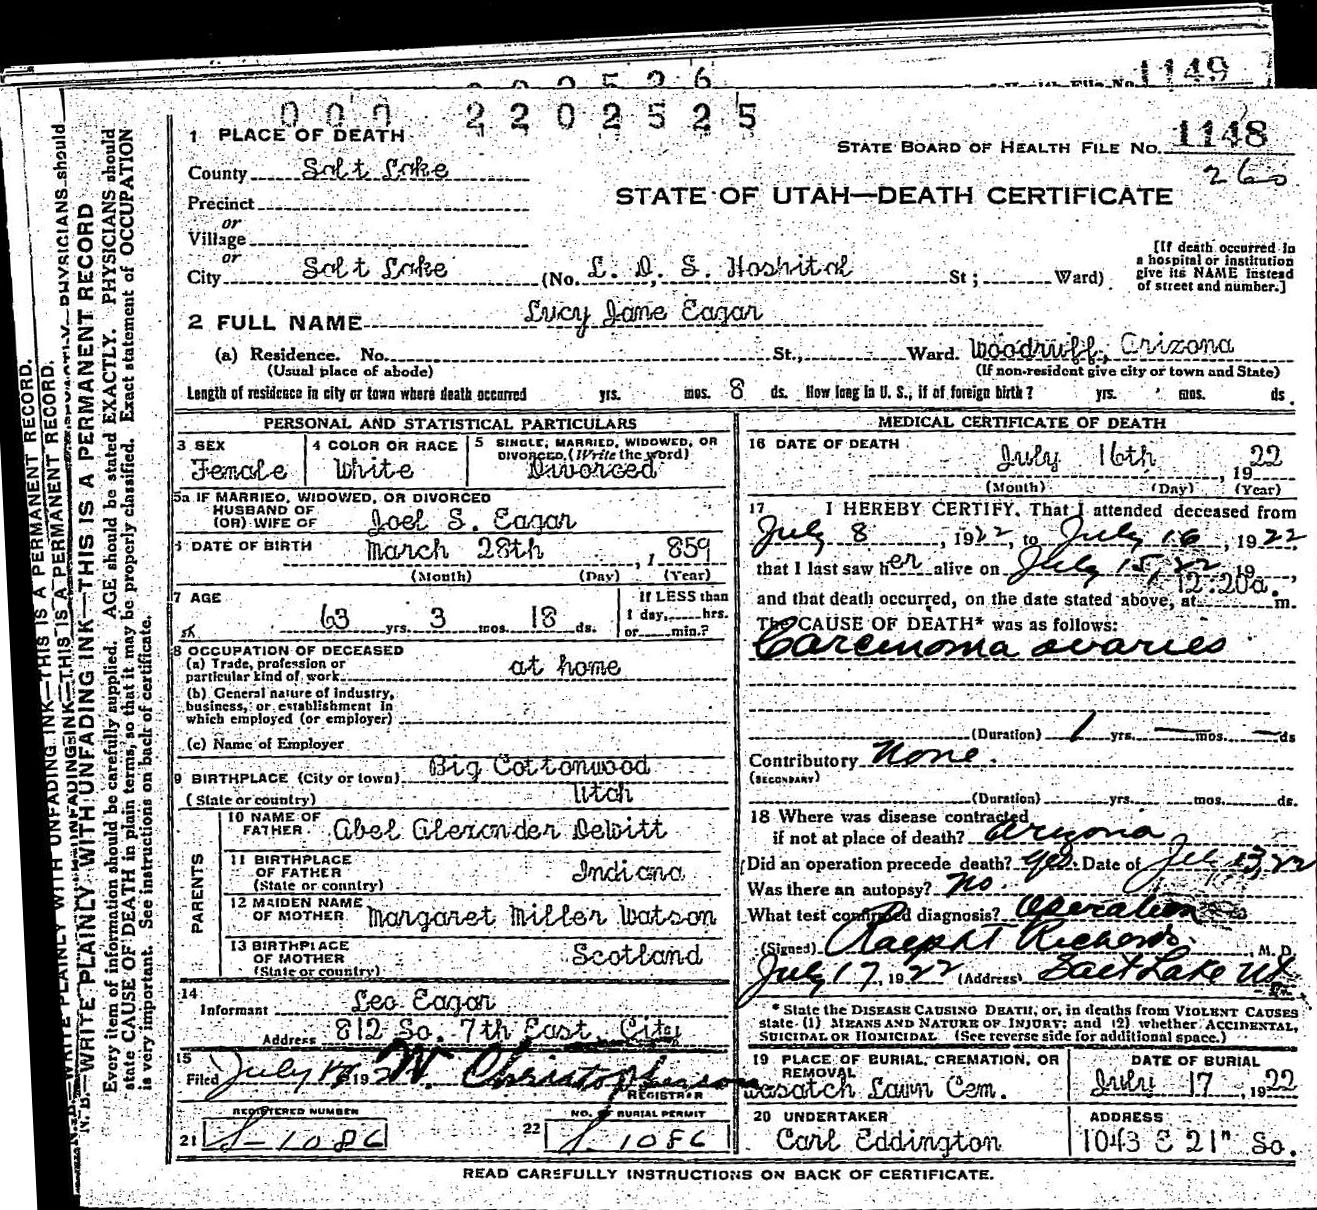 1149
000 220 2525
1148
STATE BOARD OF HEALTH FILE No. 1148
260
1 PLACE OF DEATH
County Salt Lake
STATE OF UTAH—DEATH CERTIFICATE
Precinct
or
Village
or
City Salt Lake (No. L. D. S. Hospital St; Ward)
[If death occurred in a hospital or institution give its NAME instead of street and number.]
2 FULL NAME Lucy Jane Eagar
(a) Residence. No. St., Ward. Woodruff, Arizona
(Usual place of abode) (If non-resident give city or town and State)
Length of residence in city or town where death occurred yrs. mos. 8 ds. How long in U. S., if of foreign birth? yrs. mos. ds.
PERSONAL AND STATISTICAL PARTICULARS
3 SEX Female
4 COLOR OR RACE White
5 SINGLE, MARRIED, WIDOWED, OR DIVORCED, (Write the word) Divorced
5a IF MARRIED, WIDOWED, OR DIVORCED
HUSBAND OF
(OR) WIFE OF Joel S. Eagar
6 DATE OF BIRTH March 28th, 1859
(Month) (Day) (Year)
7 AGE 63 yrs. 3 mos. 18 ds.
If LESS than
1 day, hrs.
or min.?
8 OCCUPATION OF DECEASED
(a) Trade, profession or
particular kind of work at home
(b) General nature of industry,
business, or establishment in
which employed (or employer)
(c) Name of Employer
9 BIRTHPLACE (City or town) Big Cottonwood
(State or country) Utah
PARENTS
10 NAME OF FATHER Abel Alexander Dewitt
11 BIRTHPLACE OF FATHER (State or country) Indiana
12 MAIDEN NAME OF MOTHER Margaret Miller Watson
13 BIRTHPLACE OF MOTHER (State or country) Scotland
14
Informant Leo Eagar
Address 812 So. 7th East, City
15
Filed July 192 W. Christopherson
REGISTRAR
REGISTERED NUMBER
21 S-1086
NO. BURIAL PERMIT
22 S 1086
MEDICAL CERTIFICATE OF DEATH
16 DATE OF DEATH
July 16th, 1922
(Month) (Day) (Year)
17 I HEREBY CERTIFY, That I attended deceased from
July 8, 1922, to July 16, 1922,
that I last saw her alive on July 15, 22 19,
and that death occurred, on the date stated above, at 12:20a. m.
The CAUSE OF DEATH* was as follows:
Carcinoma ovaries
(Duration) 1 yrs. — mos. — ds
Contributory None.
(SECONDARY)
(Duration) yrs. mos. ds.
18 Where was disease contracted
if not at place of death? Arizona
Did an operation precede death? yes. Date of July 13, 22
Was there an autopsy? No.
What test confirmed diagnosis? Operation
(Signed) Ralph T Richards M. D.
July 17, 1922 (Address) Salt Lake Ut
* State the DISEASE CAUSING DEATH, or, in deaths from VIOLENT CAUSES
state (1) MEANS AND NATURE OF INJURY; and (2) whether ACCIDENTAL,
SUICIDAL OR HOMICIDAL. (See reverse side for additional space.)
19 PLACE OF BURIAL, CREMATION, OR REMOVAL
Wasatch Lawn Cem.
DATE OF BURIAL
July 17, 1922
20 UNDERTAKER
Carl Eddington
ADDRESS
1043 E 21" So.
READ CAREFULLY INSTRUCTIONS ON BACK OF CERTIFICATE.
N. B.—WRITE PLAINLY WITH UNFADING INK—THIS IS A PERMANENT RECORD
Every item of information should be carefully supplied. AGE should be stated EXACTLY. PHYSICIANS should
state CAUSE OF DEATH in plain terms, so that it may be properly classified. Exact statement of OCCUPATION
is very important. See instructions on back of certificate.